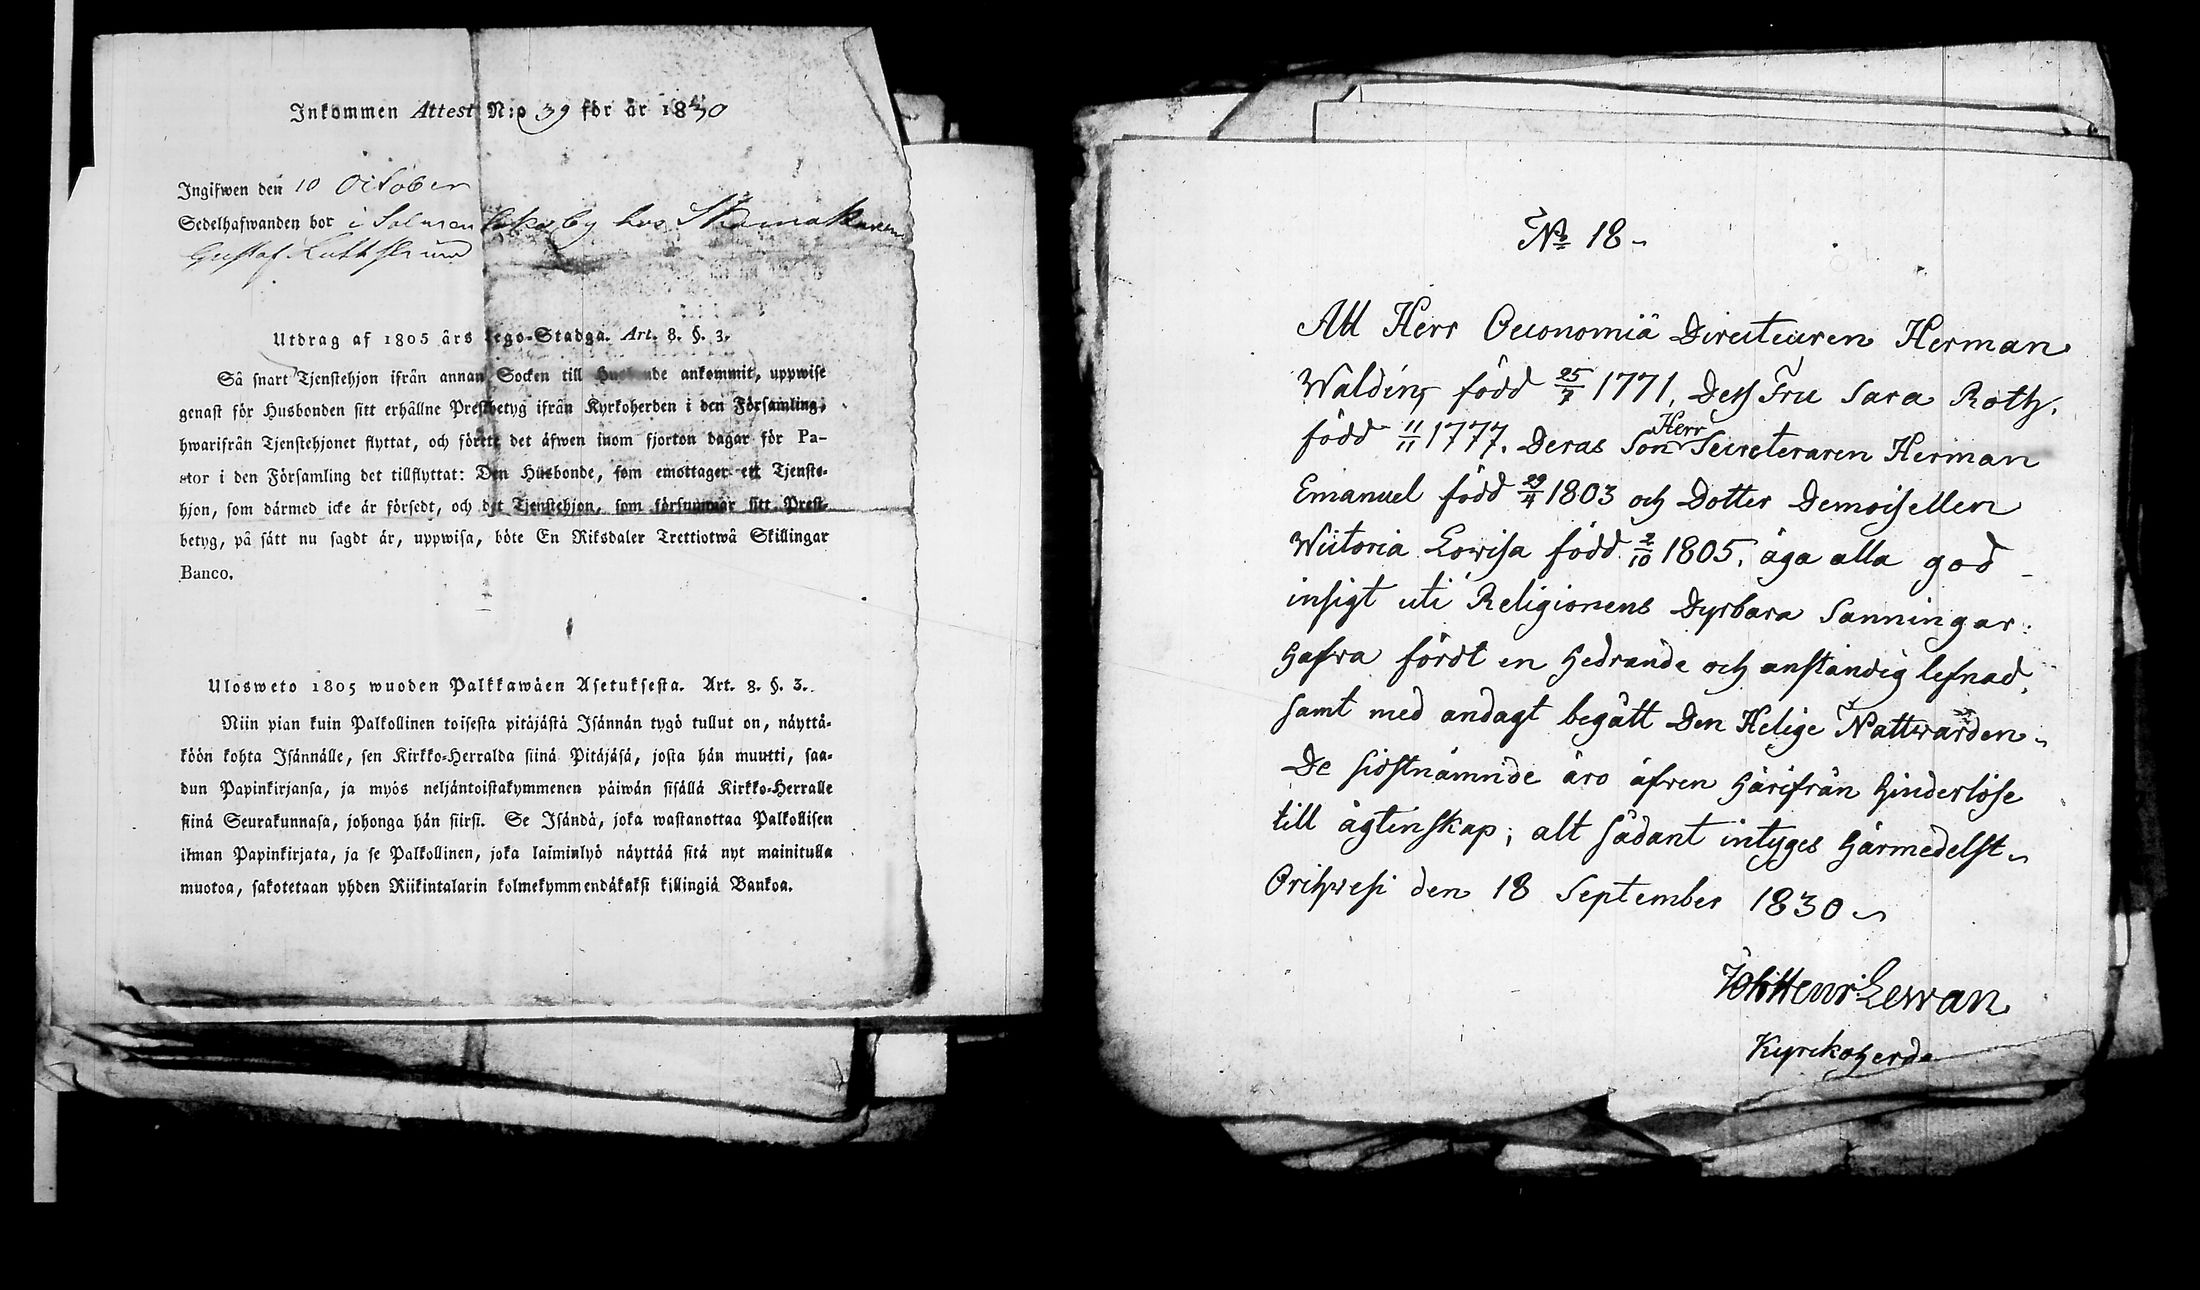 Inkommen Attest N:o 39 för år 1830
Ingifwen den 10 October
Sedelhafwanden bor i Salmen by hos Skomakaren
Gustaf
Utdrag af 1805 års Lego-Stadga. Art. 8. §. 3.
Så snart Tjenstehjon ifrån annan Socken till Husbonde ankommit, uppwise
genast för Husbonden sitt erhållne Prestbetyg ifrån Kyrkoherden i den Församling,
hwarifrån Tjenstehjonet flyttat, och förete det äfwen inom fjorton dagar för Pa-
stor i den Församling det tillflyttat: Den Husbonde, som emottager ett Tjenste-
hjon, som därmed icke är försedt, och det Tjenstehjon, som försummar sitt Prest-
betyg, på sätt nu sagdt är, uppwisa, böte En Riksdaler Trettiotwå Skillingar
Banco.
Ulosweto 1805 wuoden Palkkawäen Asetuksesta. Art. 8. §. 3.
Niin pian kuin Palkollinen toisesta pitäjästä Isännän tygö tullut on, näyttä-
köön kohta Isännälle, sen Kirkko-Herralda siinä Pitäjäsä, josta hän muutti, saa-
dun Papinkirjansa, ja myös neljäntoistakymmenen päiwän sisällä Kirkko-Herralle
siinä Seurakunnasa, johonga hän siirsi. Se Isändä, joka wastanottaa Palkollisen
ilman Papinkirjata, ja se Palkollinen, joka laiminlyö näyttää sitä nyt mainitulla
muotoa, sakotetaan yhden Riikintalarin kolmekymmendäkaksi killingiä Bankoa.
No 18
Att Herr Oeconomiä Directeuren Herman
Waldin, född 25/7 1771, Dess Fru Sara Roth,
född 11/11 1777. Deras Son Herr Secreteraren Herman
Emanuel född 29/4 1803 och Dotter Demoisellen
Wictoria Lowisa född 2/10 1805, äga alla god
insigt uti Religionens Dyrbara Sanningar:
hafwa fördt en hedrande och anständig lefnad,
samt med andagt begått Den Helige Nattwarden.
De sidstnämnde äro äfwen härifrån hinderlöse
till ägtenskap; alt sådant intyges härmedelst
Orihwesi den 18 September 1830
Joh Henr Lewan
Kyrckoherde